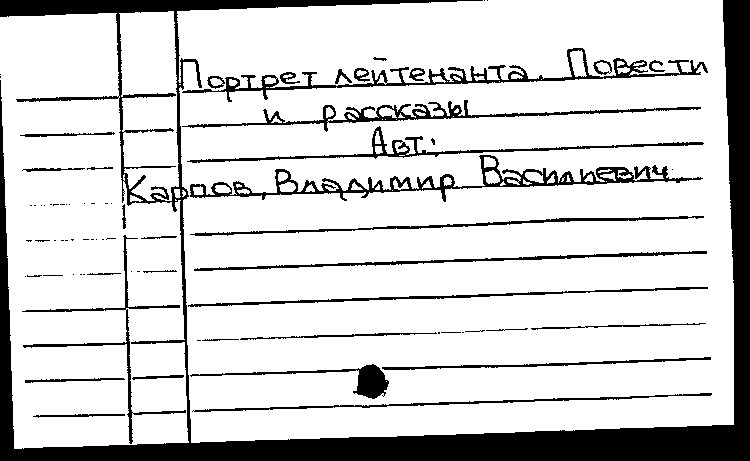 Портрет лейтенанта. Повести
и рассказы
Авт.:
Карпов, Владимир Васильевич.